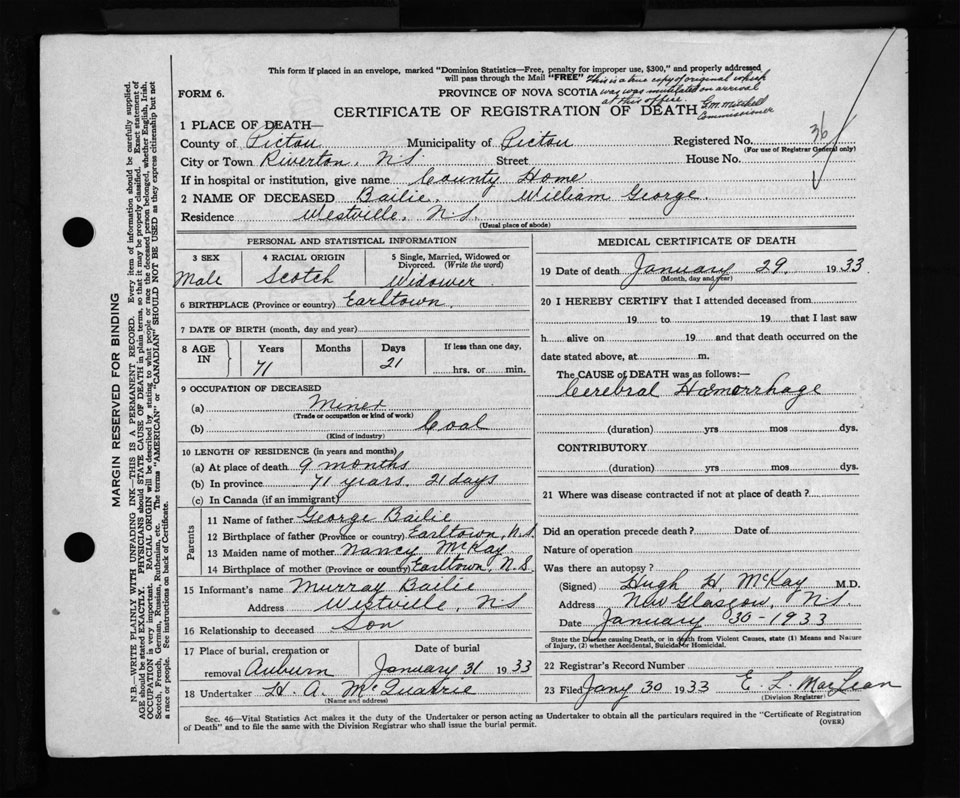 This form if placed in an envelope, marked "Dominion Statistics—Free, penalty for improper use, $300," and properly addressed
will pass through the Mail "FREE" This is a true copy of original which
FORM 6. PROVINCE OF NOVA SCOTIA way was mutilated on arrival
at this office.
CERTIFICATE OF REGISTRATION OF DEATH
G.M. Mitchell
Commissioner
1 PLACE OF DEATH—
County of Pictou Municipality of Pictou Registered No. 36
(For use of Registrar General only)
City or Town Riverton, N.S. Street House No.
If in hospital or institution, give name County Home
2 NAME OF DECEASED Bailie, William George.
Residence Westville, N.S.
(Usual place of abode)
PERSONAL AND STATISTICAL INFORMATION
3 SEX 4 RACIAL ORIGIN 5 Single, Married, Widowed or
Divorced. (Write the word)
Male Scotch Widower
6 BIRTHPLACE (Province or country) Earltown.
7 DATE OF BIRTH (month, day and year)
8 AGE IN Years Months Days If less than one day,
71 21 hrs. or min.
9 OCCUPATION OF DECEASED
(a) Miner
(Trade or occupation or kind of work)
(b) Coal
(Kind of industry)
10 LENGTH OF RESIDENCE (in years and months)
(a) At place of death 9 months
(b) In province 71 years. 21 days
(c) In Canada (if an immigrant)
Parents
11 Name of father George Bailie
12 Birthplace of father (Province or country) Earltown, N.S.
13 Maiden name of mother Nancy McKay
14 Birthplace of mother (Province or country) Earltown, N.S.
15 Informant's name Murray Bailie
Address Westville, N.S
16 Relationship to deceased Son
17 Place of burial, cremation or Date of burial
removal Auburn January 31 1933
18 Undertaker H. A. McQuarrie
(Name and address)
MEDICAL CERTIFICATE OF DEATH
19 Date of death January 29, 1933.
(Month, day and year)
20 I HEREBY CERTIFY that I attended deceased from
19 to 19 that I last saw
h alive on 19 and that death occurred on the
date stated above, at m.
The CAUSE OF DEATH was as follows:—
Cerebral Hæmorrhage
(duration) yrs mos dys.
CONTRIBUTORY
(duration) yrs mos dys.
21 Where was disease contracted if not at place of death?
Did an operation precede death? Date of
Nature of operation
Was there an autopsy?
(Signed) Hugh H. McKay M.D.
Address New Glasgow, N.S.
Date January 30-1933
State the Disease causing Death, or in death from Violent Causes, state (1) Means and Nature
of Injury, (2) whether Accidental, Suicidal or Homicidal.
22 Registrar's Record Number
23 Filed Jany 30 1933 E. L. MacLean
(Division Registrar)
Sec. 46—Vital Statistics Act makes it the duty of the Undertaker or person acting as Undertaker to obtain all the particulars required in the "Certificate of Registration
of Death" and to file the same with the Division Registrar who shall issue the burial permit. (OVER)
MARGIN RESERVED FOR BINDING
N.B.—WRITE PLAINLY WITH UNFADING INK—THIS IS A PERMANENT RECORD. Every item of information should be carefully supplied.
AGE should be stated EXACTLY. PHYSICIANS should STATE CAUSE OF DEATH in plain terms, so that it may be properly classified. Exact statement of
OCCUPATION is very important. RACIAL ORIGIN will be described by stating to what people or race the deceased person belonged, whether English, Irish,
Scotch, French, German, Russian, Ruthenian, etc. The terms "AMERICAN" or "CANADIAN" SHOULD NOT BE USED as they express citizenship but not
a race or people. See instructions on back of Certificate.